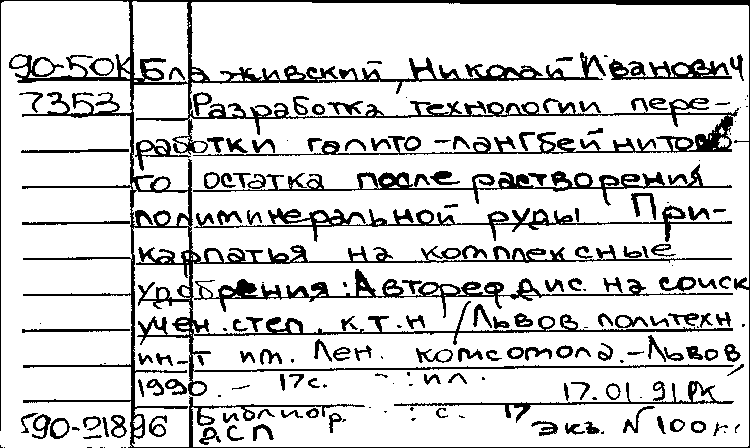 90-50К Блаживский, Николай Иванович
7353 Разработка технологии пере-
работки галито-лангбейнитово-
го остатка после растворения
полиминеральной руды При-
карпатья на комплексные
удобрения: Автореф. дис. на соиск.
учен. степ. к.т.н / Львов. политехн.
ин-т им. Лен. комсомола. - Львов,
1990. - 17 с. - : ил.
17.01.91 РК
590-21896 Библиогр. : с. 17
ДСП экз. N 100